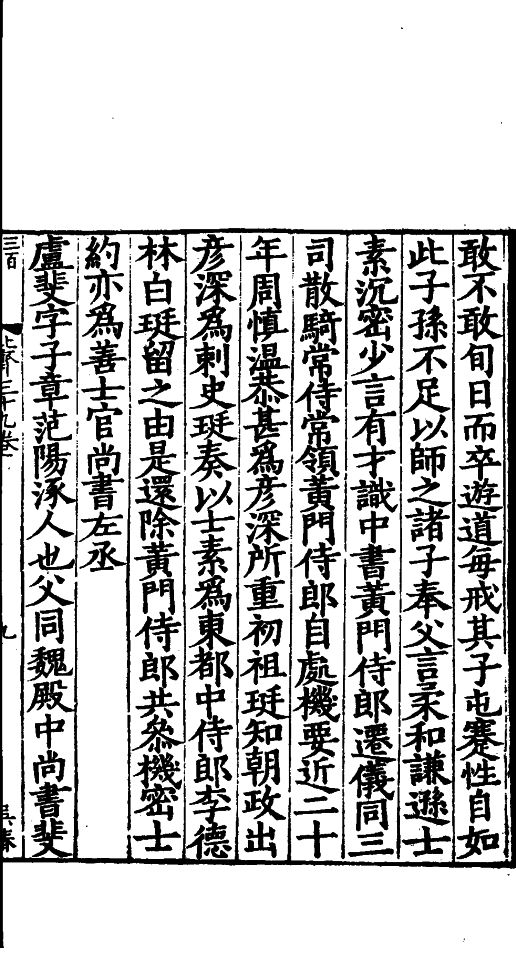 敢不敢旬日而卒遊道每戒其子屯蹇性自如
此子孫不足以師之諸子奉父言柔和謙遜士
素沉密少言有才識中書黃門侍郎遷儀同三
司散騎常侍常領黃門侍郎自處機要近二十
年周慎溫恭甚為彥深所重初祖珽知朝政出
彥深為刺史珽奏以士素為東都中侍郎李德
林白珽留之由是還除黃門侍郎共叅機密士
約亦為善士官尚書左丞
盧斐字子章范陽涿人也父同魏殿中尚書斐
三百
三十九卷
九